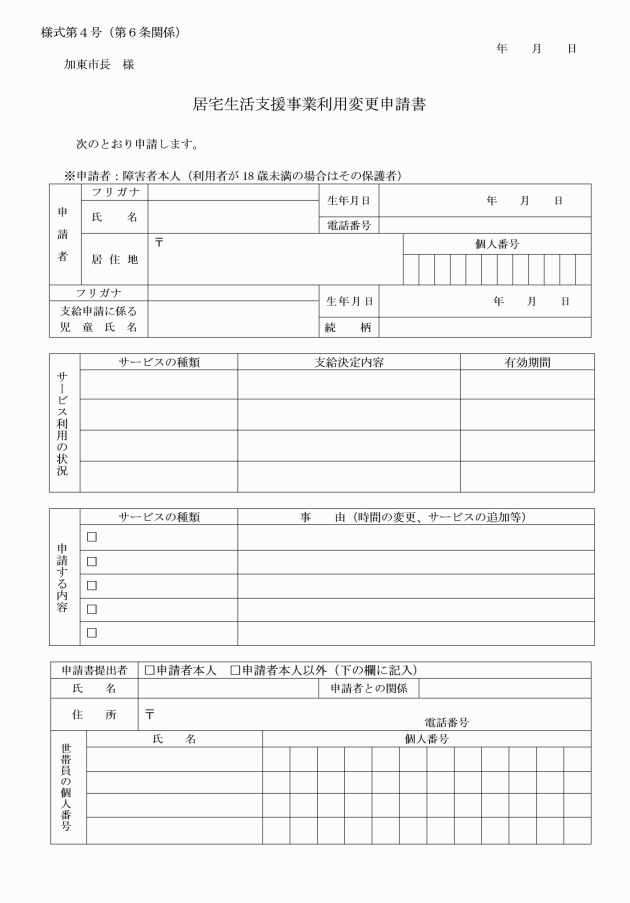 様式第４号（第６条関係）
年　　月　　日
加東市長　様
居宅生活支援事業利用変更申請書
次のとおり申請します。
※申請者：障害者本人（利用者が 18 歳未満の場合はその保護者）
申請者
フリガナ
氏　　名
生年月日
年　　月　　日
電話番号
居 住 地
〒
個人番号
フリガナ
支給申請に係る
児 童 氏 名
生年月日
年　　月　　日
続　　柄
サービス利用の状況
サービスの種類　支給決定内容　有効期間
申請する内容
サービスの種類　事　　由（時間の変更、サービスの追加等）
□
□
□
□
□
申請書提出者　□申請者本人　□申請者本人以外（下の欄に記入）
氏　　名　申請者との関係
住　　所　〒
電話番号
世帯員の個人番号
氏　　名　個人番号